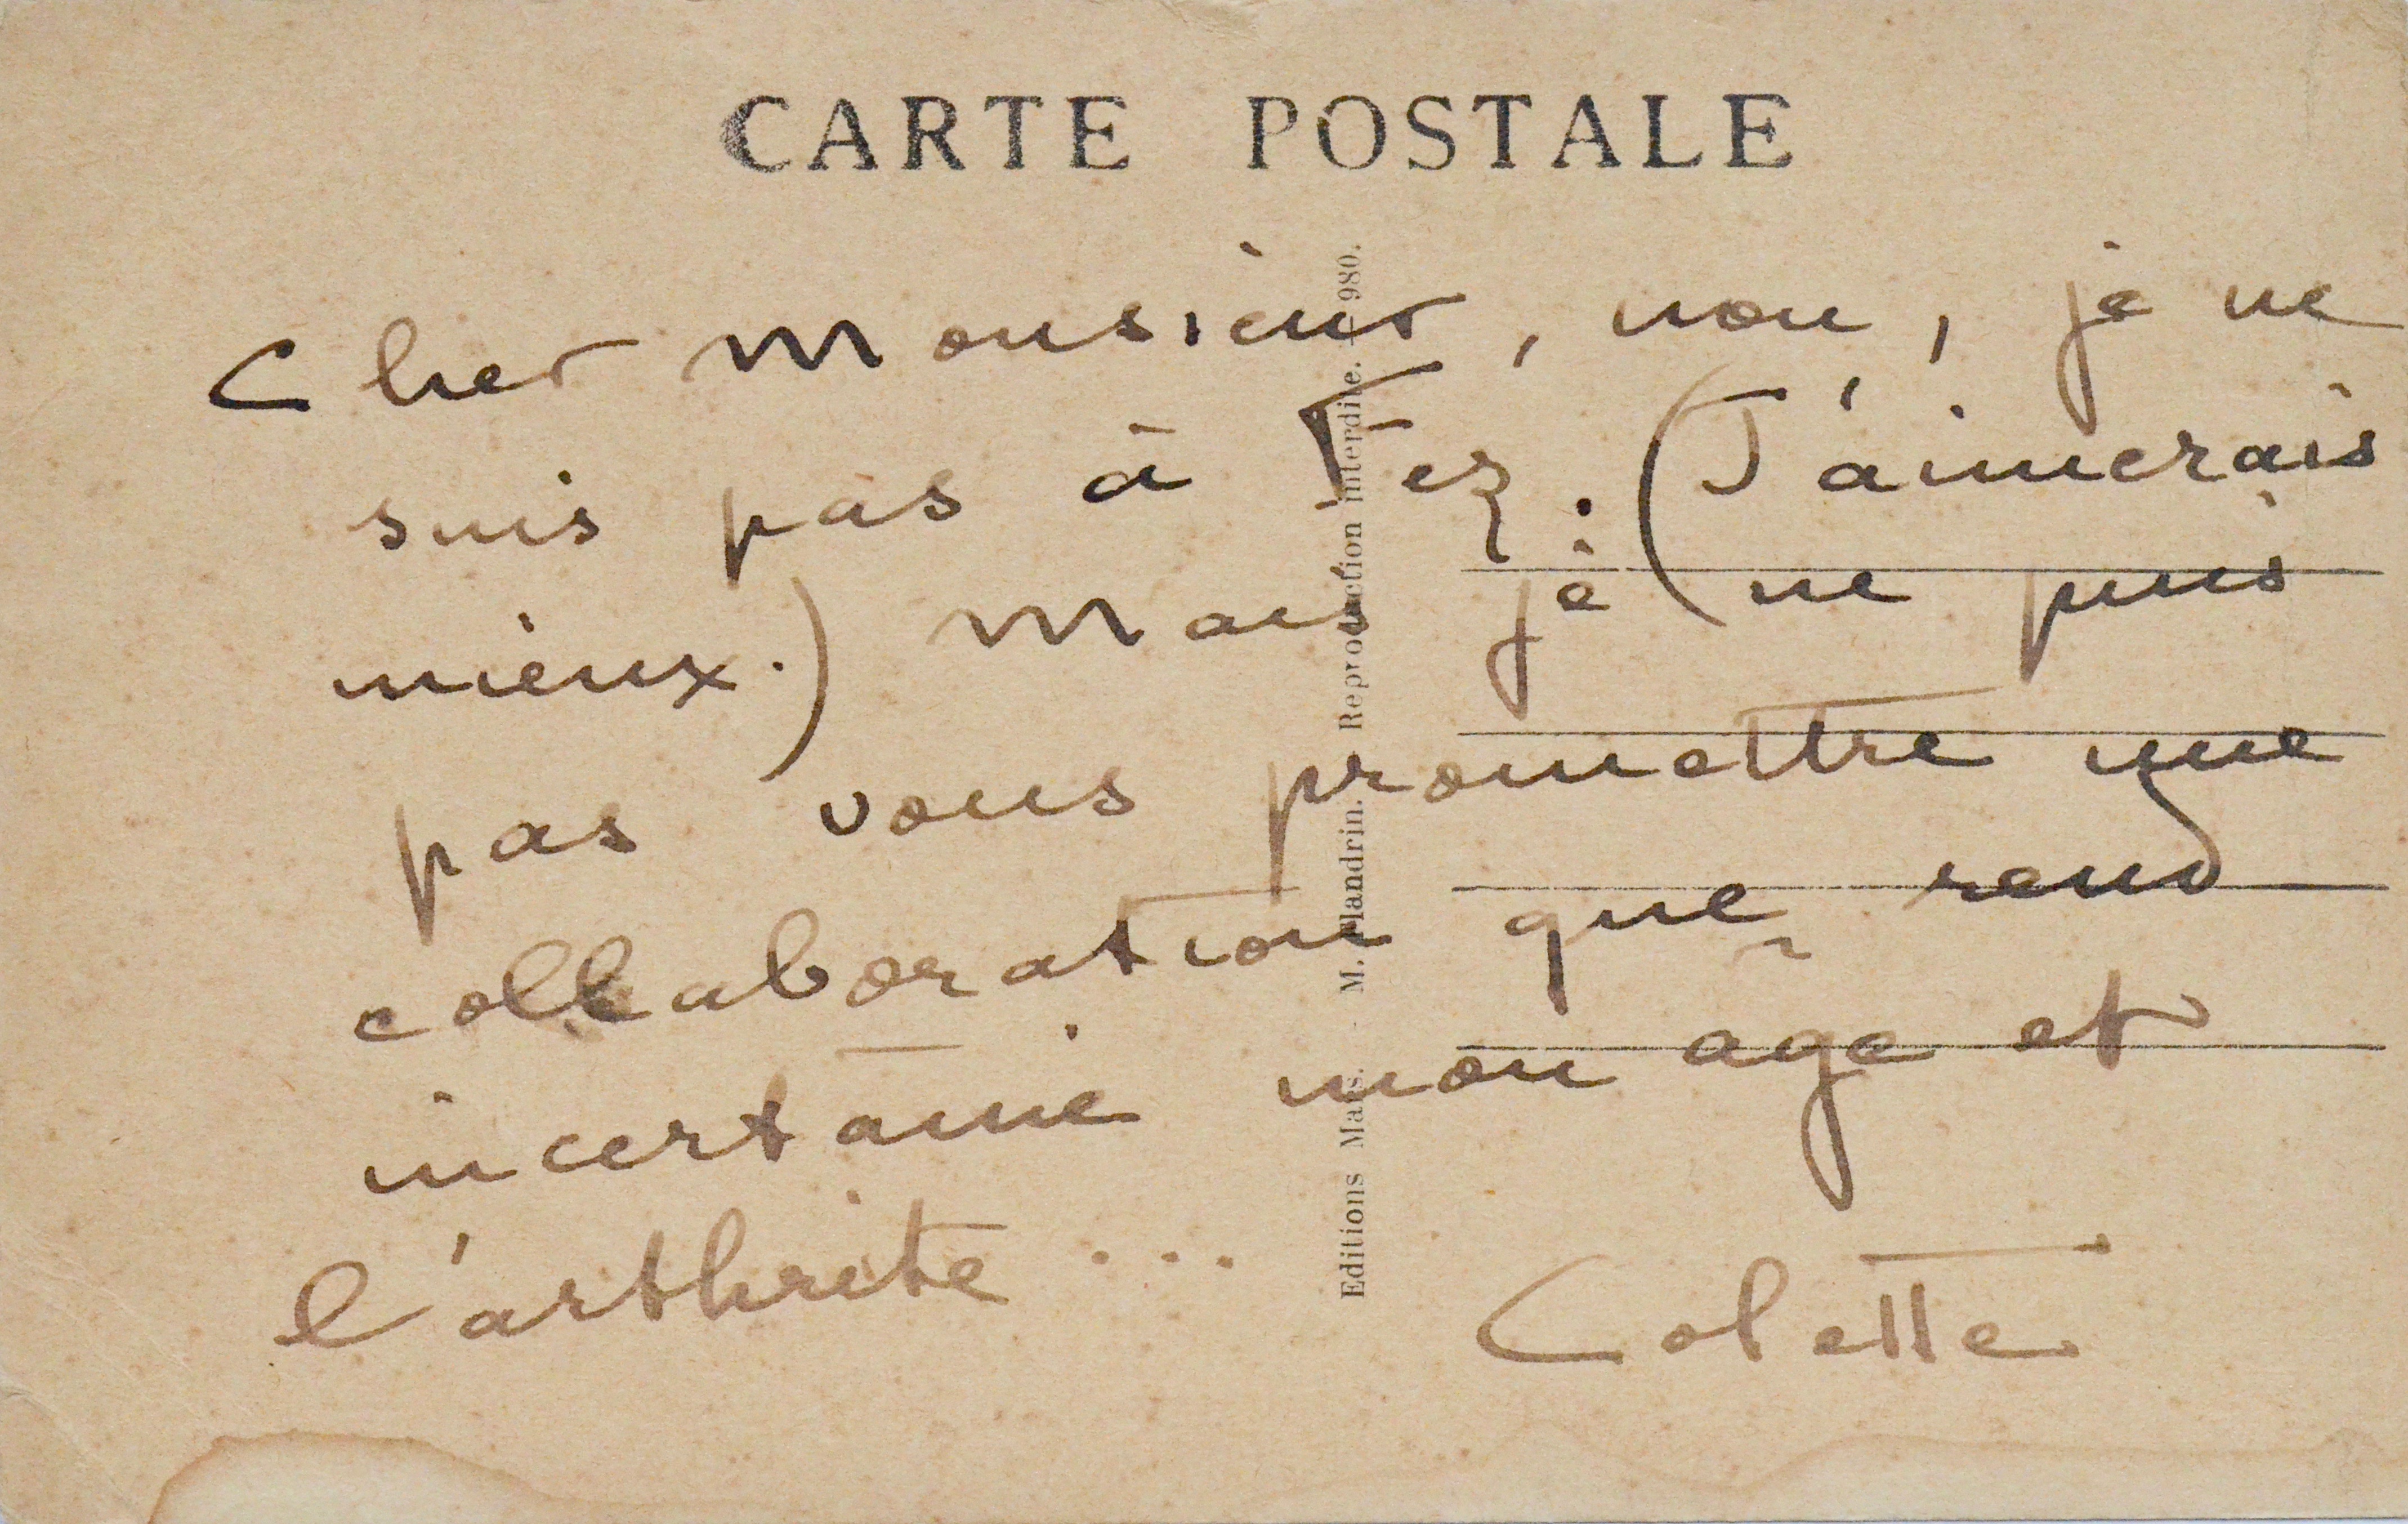 CARTE POSTALE
Cher Monsieur, non, je ne
suis pas à Fez. (J'aimerais
mieux.) Mais je ne puis
pas vous promettre une
collaboration que rend
incertaine mon âge et
l'arthrite ...
Colette
Editions Mars. - M. Flandrin. Reproduction interdite. - 980.